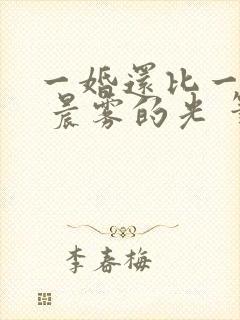 一婚还比一
晨雾的光
李春梅